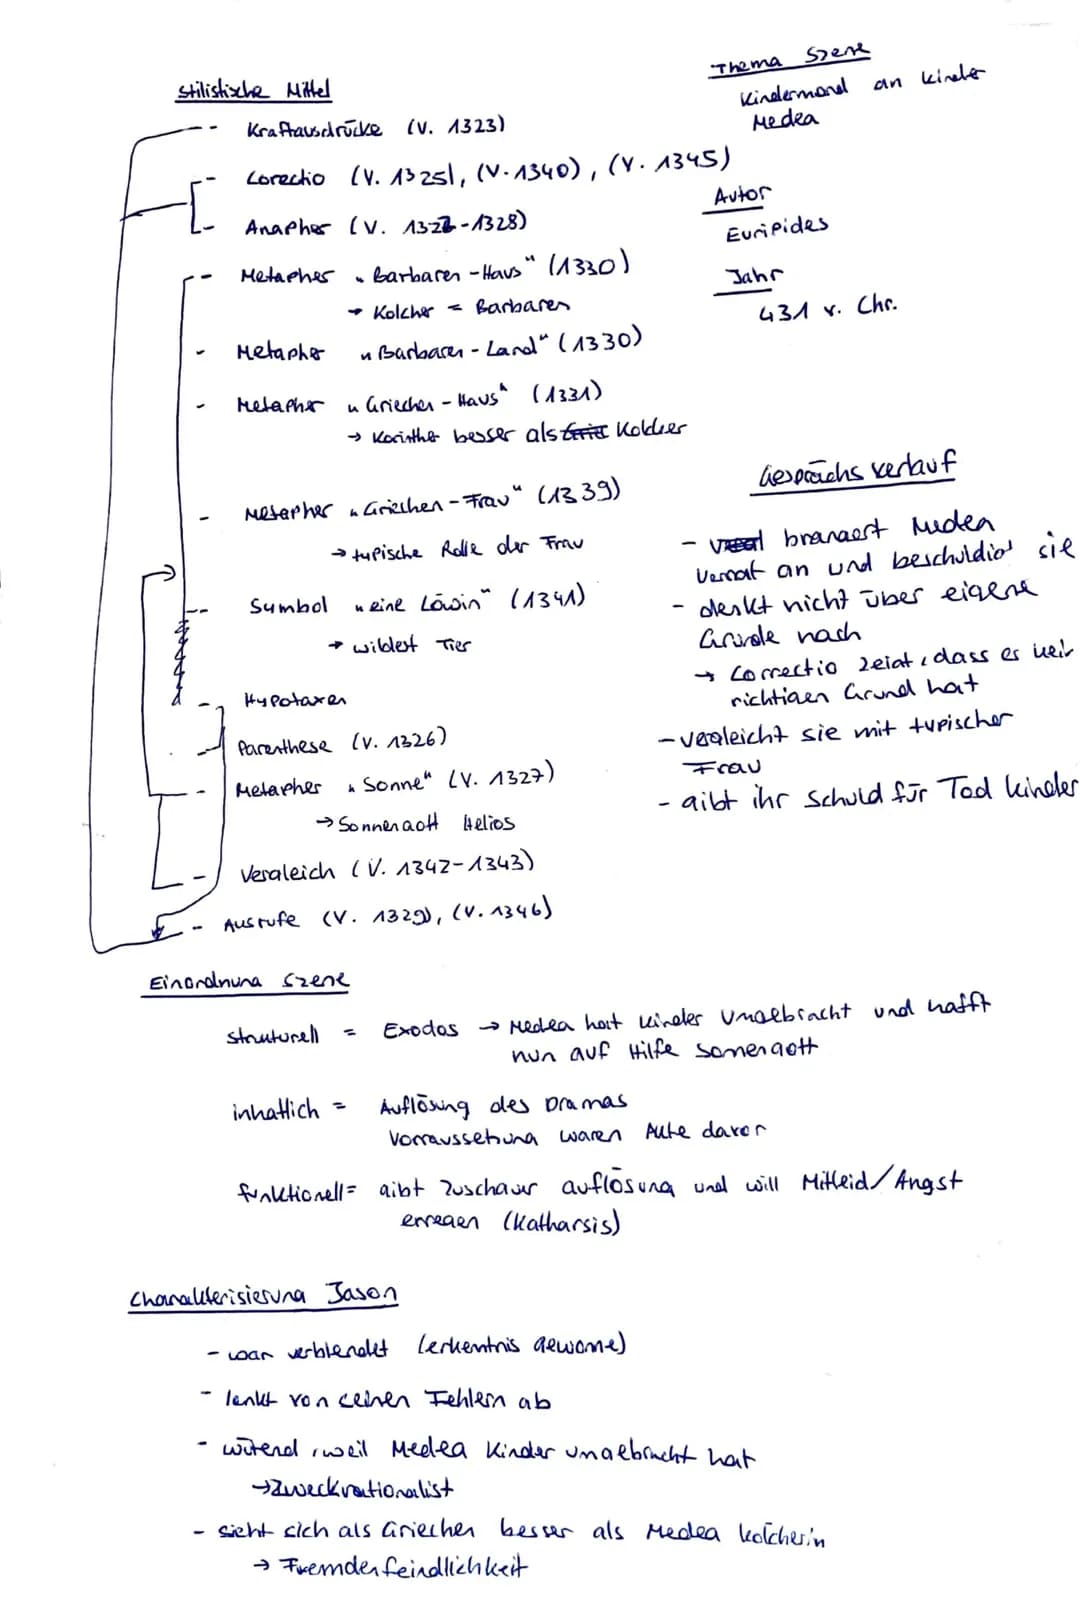 Stilistische Mittel
- Kraftausdrücke (V. 1323)
- Corectio (V. 1325), (V. 1340), (V. 1345)
- Anapher (V. 1327-1328)
- Metapher „Barbaren-Haus" (1330)
→ Kolcher = Barbaren
- Metapher „Barbaren-Land" (1330)
- Metapher „Griechen-Haus" (1331)
→ Korinther besser als Kolcher
- Metapher „Griechen-Frau" (1339)
→ typische Rolle der Frau
- Symbol „eine Löwin" (1341)
→ wildest Tier
- Hypotaxen
- Parenthese (V. 1326)
- Metapher „Sonne" (V. 1327)
→ Sonnengott Helios
- Vergleich (V. 1342-1343)
- Ausrufe (V. 1329), (V. 1346)
Thema Szene
Kindermord an Kinder
Medea
Autor
Euripides
Jahr
431 v. Chr.
Gesprächsverlauf
- brangert Medea
Verrat an und beschuldigt sie
- denkt nicht über eigene
Gründe nach
→ Correctio zeigt, dass er kein
richtigen Grund hat
- vergleicht sie mit typischer
Frau
- gibt ihr Schuld für Tod Kinder
Einordnung Szene
strukturell = Exodos → Medea hat Kinder umgebracht und hofft
nun auf Hilfe Sonnengott
inhaltlich = Auflösung des Dramas
Vorraussetzung waren Akte davor
funktionell = gibt Zuschauer auflösung und will Mitleid/Angst
erregen (Katharsis)
Charakterisierung Jason
- war verblendet (erkentnis gewonne)
- lenkt von seinen Fehlern ab
- wütend, weil Medea Kinder umgebracht hat
→ Zweckrationalist
- sieht sich als Griechen besser als Medea Kolcherin
→ Fremdenfeindlichkeit